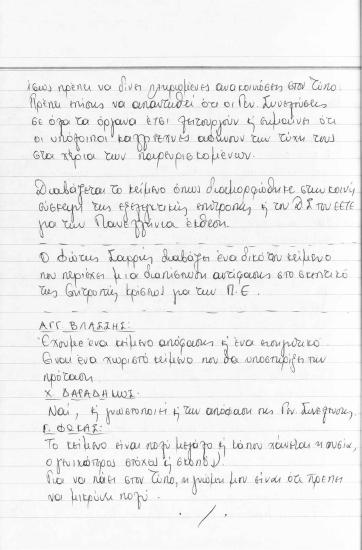 ίσως πρέπει να δίνει πληρωμένες ανακοινώσεις στον Τύπο.
Πρέπει επίσης να απαντηθεί ότι οι Γεν. Συνελεύσεις
σε όλα τα όργανα έτσι λειτουργούν ή σημαίνει ότι
οι υπόλοιποι καλλιτέχνες αφήνουν την τύχη τους
στα χέρια των παρευρισκομένων.
Διαβάζεται το κείμενο όπως διαμορφώθηκε στην κοινή
σύσκεψη της εξελεγκτικής επιτροπής ή του ΔΣ του ΕΕΤΕ
για την Πανελλήνια έκθεση.
Ο Φώτης Σαρρής διαβάζει ένα δικό του κείμενο
που περιέχει μια διαπίστωση αντίφασης στο σκεπτικό
της Επιτροπής κρίσεως για την Π.Ε.
ΑΓΓ. ΒΛΑΣΣΗΣ:
Έχουμε ένα κείμενο απόφασης ή ένα εισηγητικό.
Είναι ένα χωριστό κείμενο που θα υποστηρίξει την
πρόταση.
Χ. ΔΑΡΑΔΗΜΟΣ:
Ναί, ή γνωστοποιεί ή την απόφαση της Γεν. Συνέλευσης.
Γ. ΦΩΚΑΣ:
Το κείμενο είναι πολύ μεγάλο ή κάπου χάνεται η ουσία,
ο γενικώτερος στόχος ή σκοπός).
Για να πάει στον Τύπο, η γνώμη μου είναι ότι πρέπει
να μικρύνει πολύ.
./.